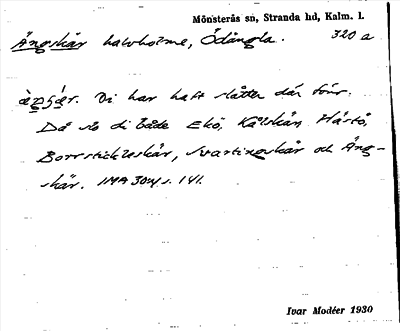 Mönsterås sn, Stranda hd, Kalm. l.
Ängskär halvholme, Ödängla. 320 a
Vi har haft slåtter där förr.
Då slo di både Ekö, Kålskär, Håstö,
Borrstickleskär, Svartingskär och Äng-
skär. IMA 304 s. 141.
Ivar Modéer 1930